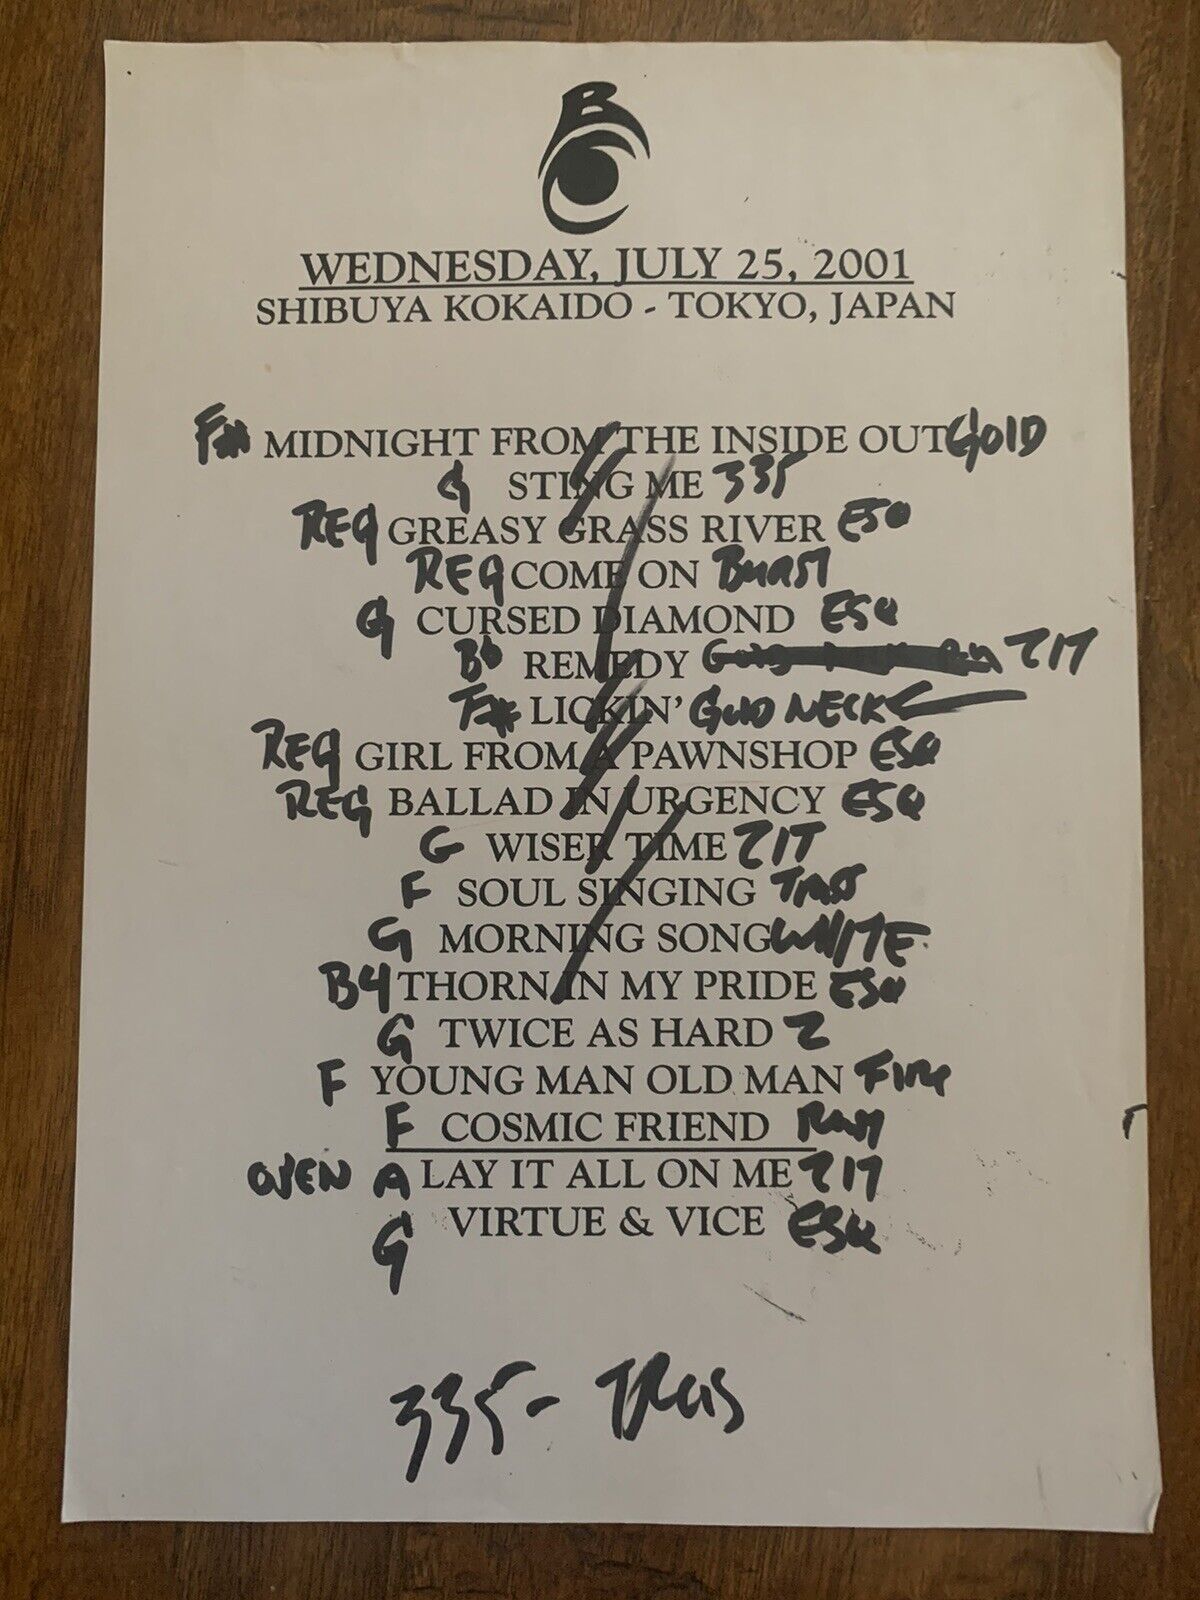 B
WEDNESDAY, JULY 25, 2001
SHIBUYA KOKAIDO - TOKYO, JAPAN
F# MIDNIGHT FROM THE INSIDE OUT GOLD
G STING ME 335
REG GREASY GRASS RIVER ESQ
REG COME ON BURST
G CURSED DIAMOND ESQ
REMEDY ZIT
F# LICKIN' NECK
REG GIRL FROM A PAWNSHOP ESQ
REG BALLAD IN URGENCY ESQ
G WISER TIME ZIT
F SOUL SINGING
G MORNING SONG WHITE
B4 THORN IN MY PRIDE ESQ
G TWICE AS HARD Z
F YOUNG MAN OLD MAN FIRE
F COSMIC FRIEND
OPEN A LAY IT ALL ON ME ZIT
G VIRTUE & VICE ESQ
335-